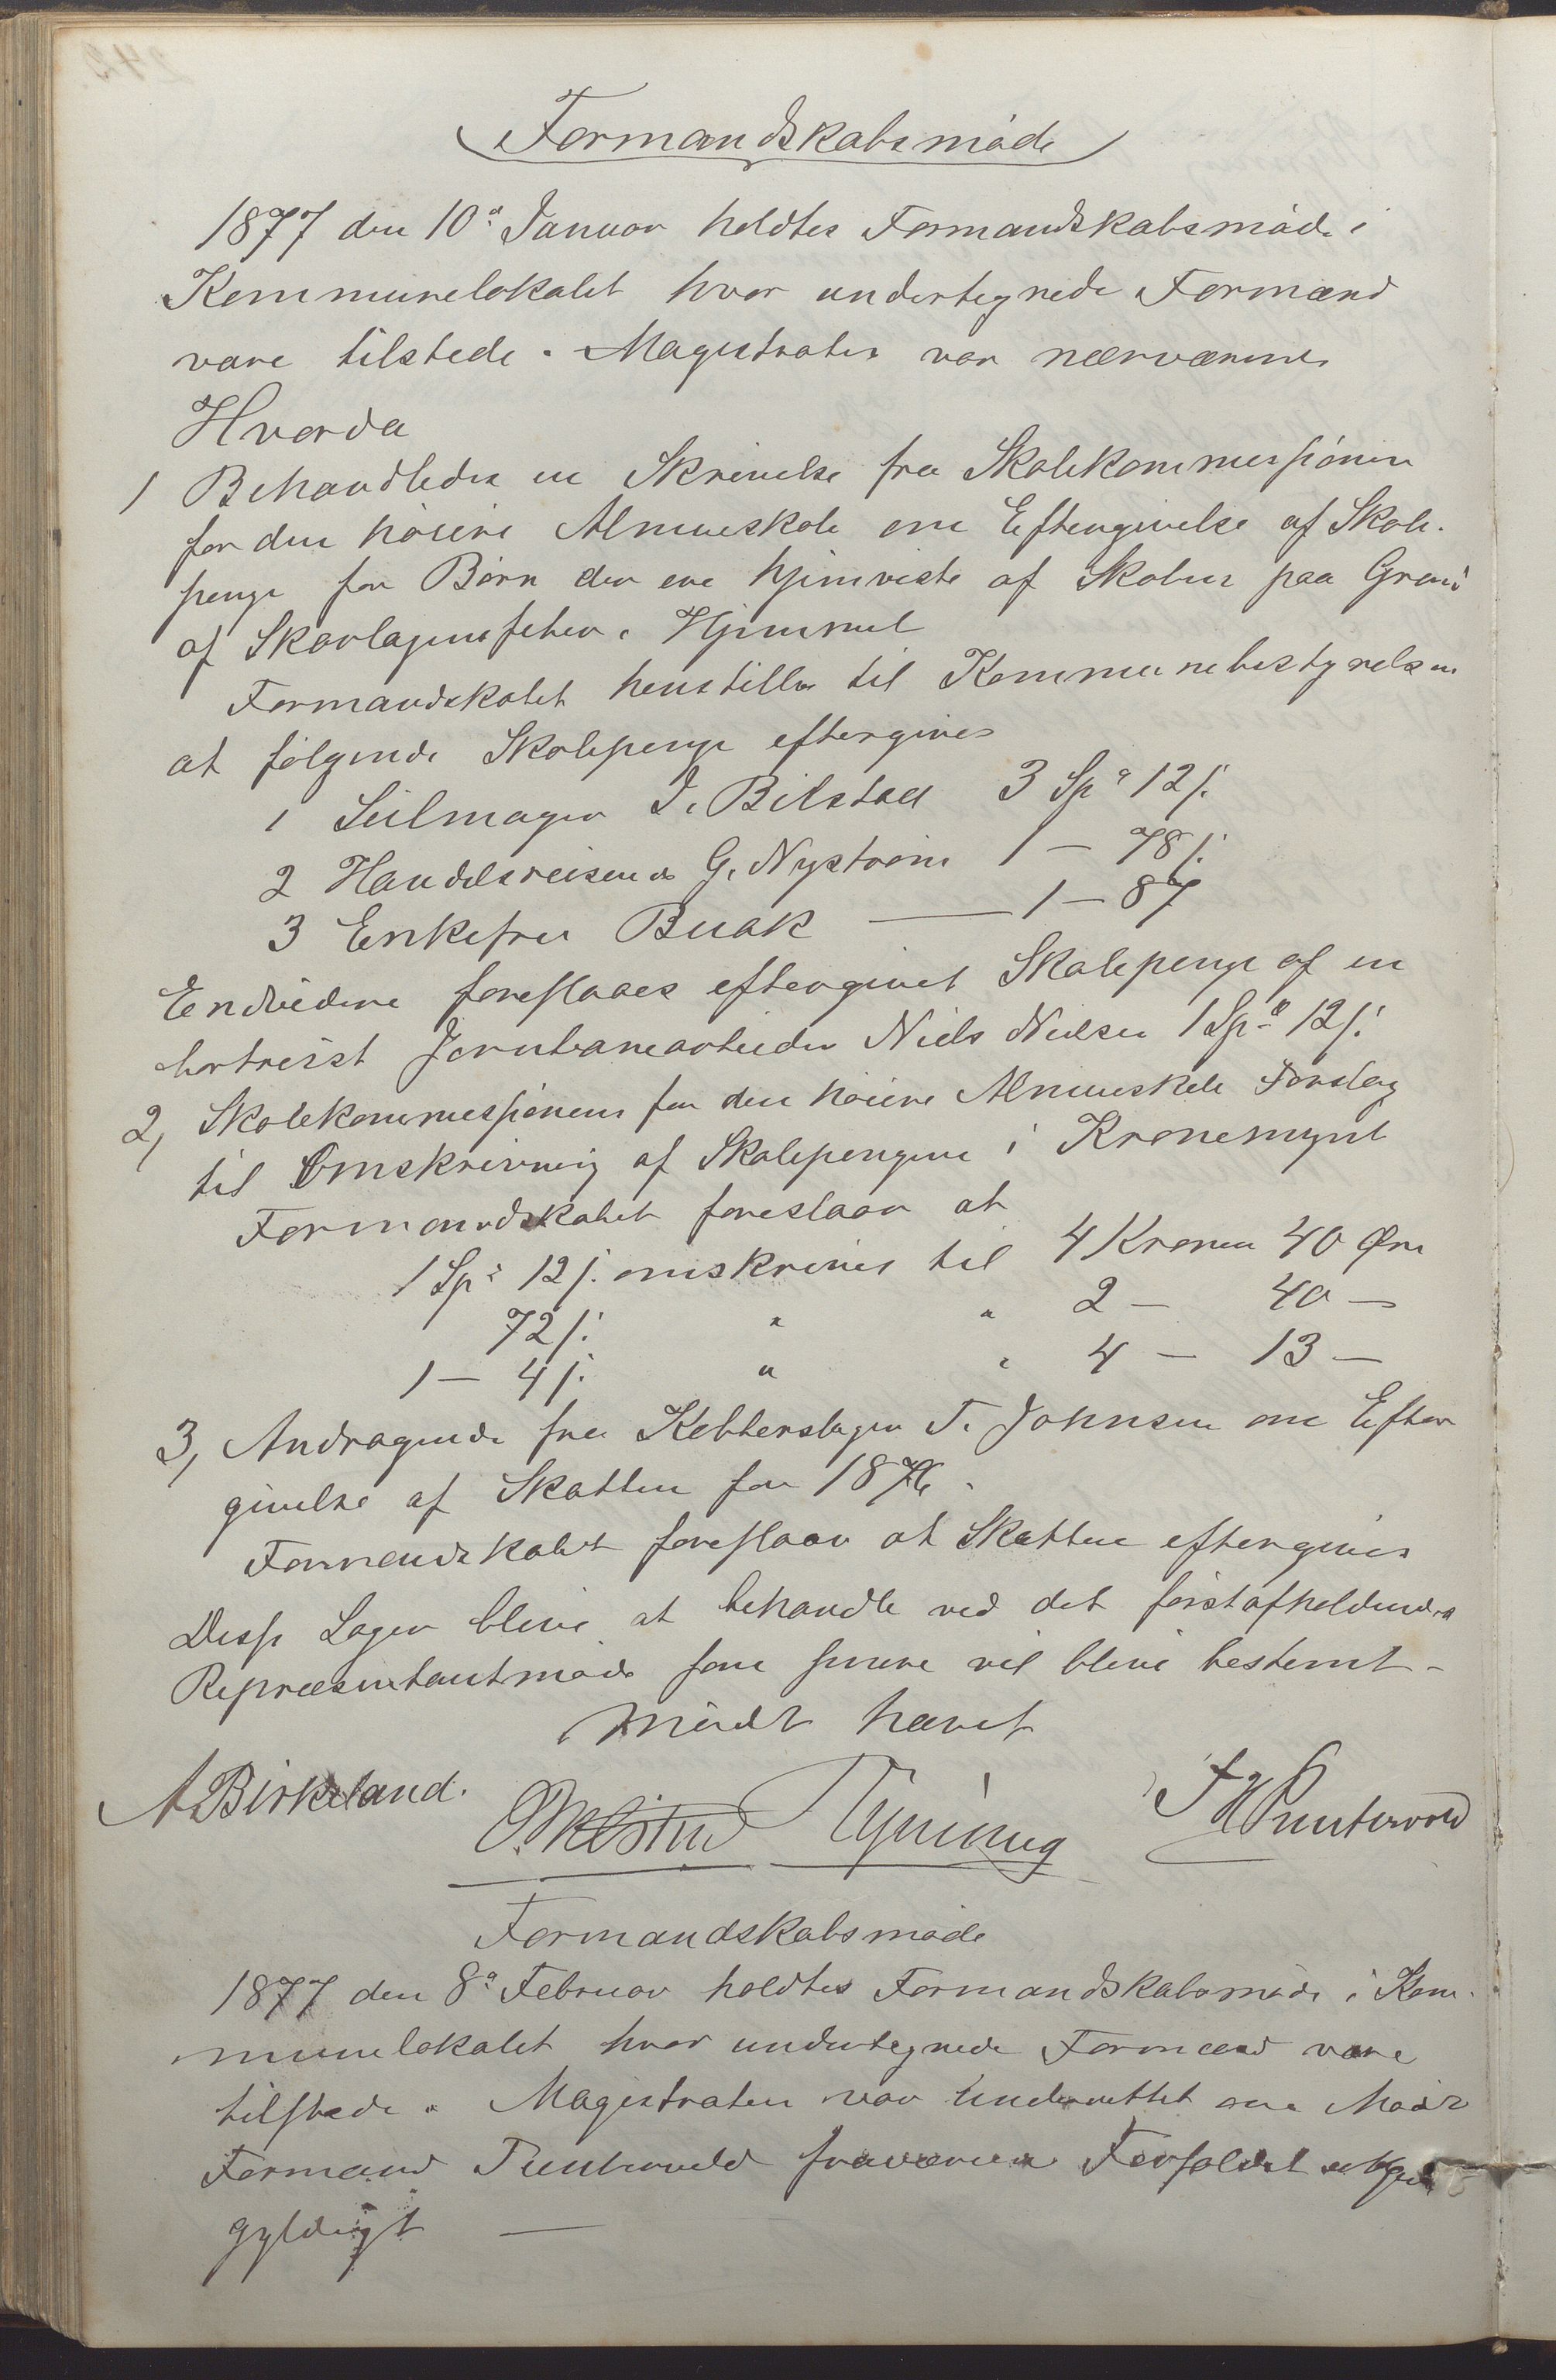 Formandskabsmøde
1877 den 10d Januar holdtes Formandskabsmøde i
Kommunelokalet hvor undertegnede Formænd
vare tilstede. Magistraten var nærværende
Hvorda
1 Behandledes en Skrivelse fra Skolekommissionen
for den høiere Almueskole om Eftergivelse af Skole-
penge for Børn der ere hjemviste af Skolen paa Grund
af Skarlagensfeber i Hjemmet
Formandskabet henstiller til Kommunebestyrelsen
at følgende Skolepenge eftergives
1 Seilmager J. Bilstad 3 Spd 12 /:
2 Handelsreisende G. Nystrøm 1 — 78 /:
3 Enkefru Buak — 1 — 87
Endvidere foreslaaes eftergivet Skolepenge af en
bortreist Jernbanearbeider Niels Nielsen 1 Spd 12 /:
2, Skolekommissionens for den høiere Almueskole Forslag
til Omskrivning af Skolepengene i Kronemynt
Formandskabet foreslaar at
1 Spd 12 /: omskrives til 4 Kroner 40 Øre
72 /: " " 2 — 40 —
1 — 4 /: " " 4 — 13 —
3, Andragende fra Kobberslager T. Johnsen om Efter
givelse af Skatten for 1876.
Formandskabet foreslaar at Skatten eftergives
Disse Sager blive at behandle ved det førstafholdende
Repræsentantmøde som senere vil blive bestemt -
Mødet hævet
A Birkeland. Tyning
Formandskabsmøde
1877 den 8d Februar holdtes Formandskabsmøde i Kom-
munelokalet hvor undertegnede Formænd vare
tilstede. Magistraten var underrettet om Mødet
Formand Puntervold fraværende Forfaldet
gyldigt —